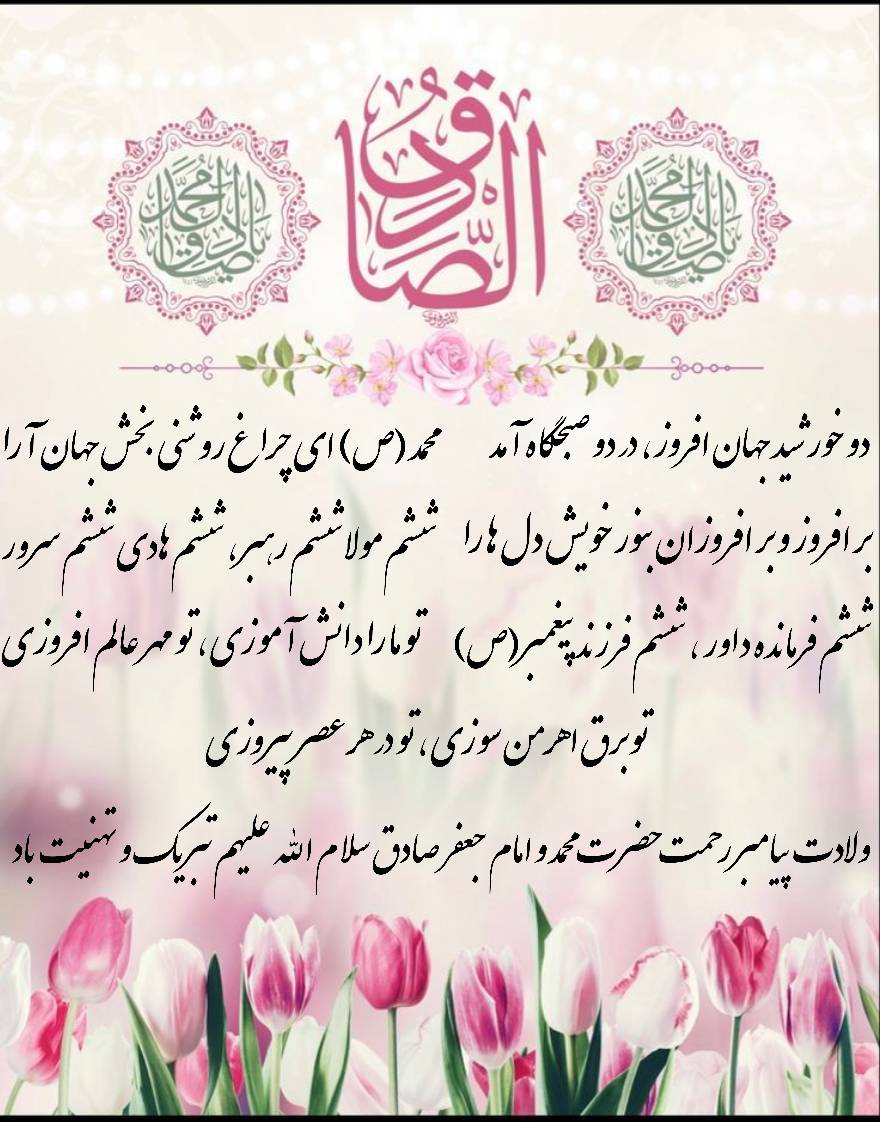 یا محمد یا صادق
الصّادق
یا محمد یا صادق
دو خورشید جهان افروز، در دو صبحگاه آمد محمد (ص) ای چراغ روشنی بخش جهان آرا
بر افروز و بر افروزان بنور خویش دل ها را ششم مولا ششم رهبر، ششم هادی ششم سرور
ششم فرمانده داور ، ششم فرزند پیغمبر(ص) تو ما را دانش آموزی، تو مهر عالم افروزی
تو برق اهرمن سوزی، تو در هر عصر پیروزی
ولادت پیامبر رحمت حضرت محمد و امام جعفر صادق سلام الله علیهم تبریک و تهنیت باد